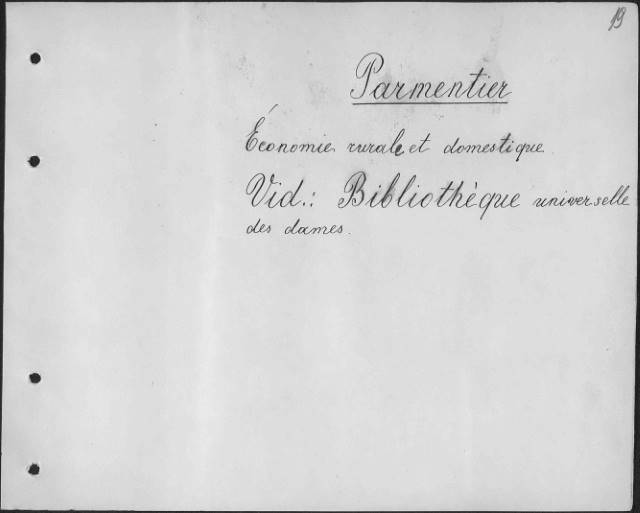 19
Parmentier
Économie rurale et domestique.
Vid.: Bibliothèque universelle
des dames.